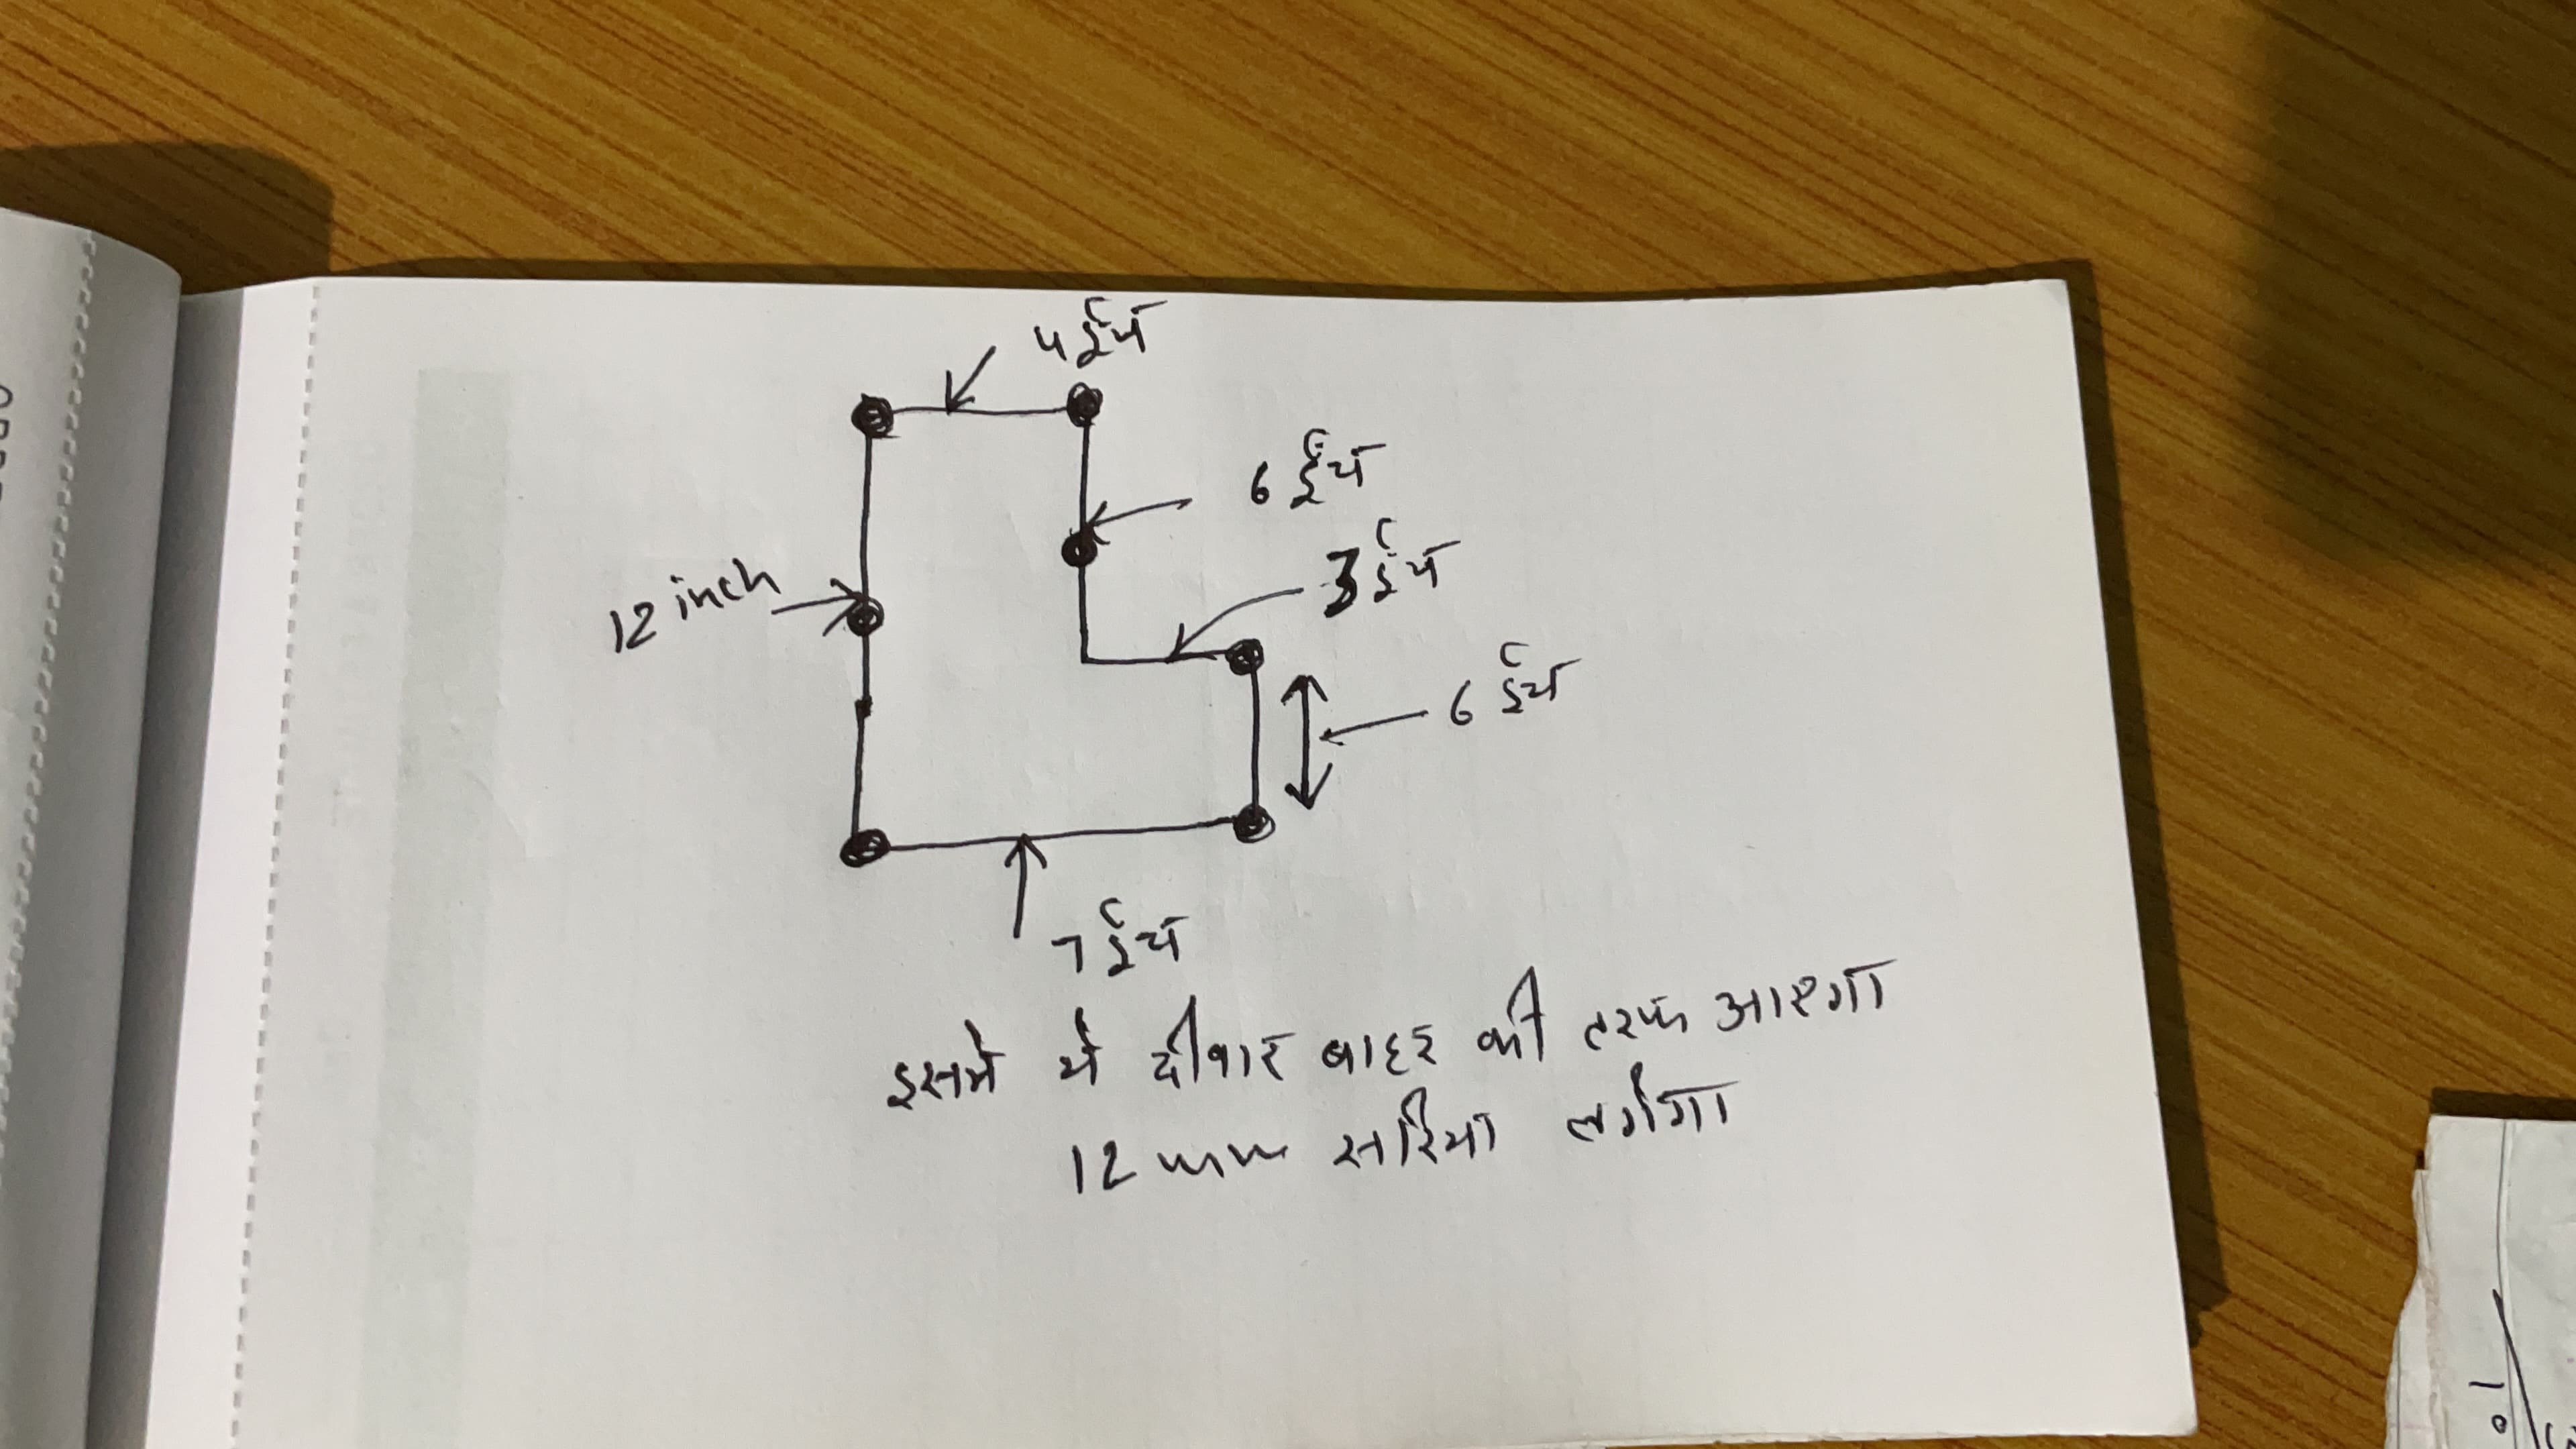 4 ईंच
6 ईंच
3 ईंच
12 inch
6 इंच
7 ईंच
इसमे ये दीवार बाहर की तरफ आएगा
12 mm सरिया लगेगा